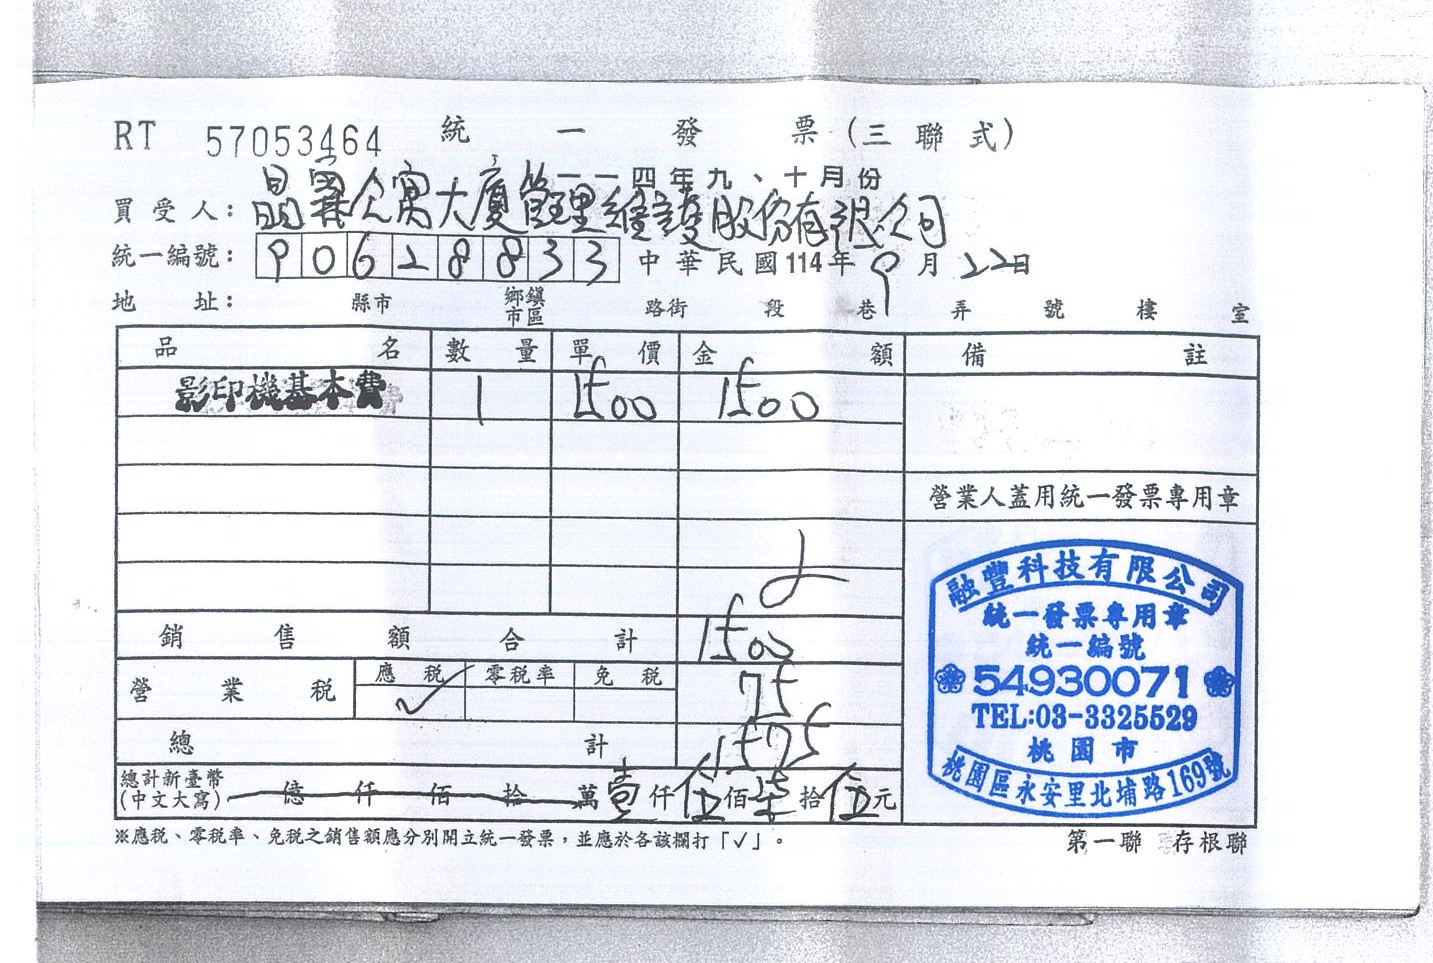 RT 57053464 統一發票(三聯式)
一一四年九、十月份
買受人：晶霖公寓大廈管理維護股份有限公司
統一編號：90628833 中華民國114年9月22日
地址： 縣市 鄉鎮市區 路街 段 巷 弄 號 樓 室
品名 數量 單價 金額 備註
影印機基本費 1 1500 1500
營業人蓋用統一發票專用章
銷售額合計 1500
營業稅 應稅 ✓ 零稅率 免稅 75
總計 1575
總計新臺幣(中文大寫) 億 仟 佰 拾 萬 壹仟伍佰柒拾伍元
※應稅、零稅率、免稅之銷售額應分別開立統一發票，並應於各該欄打「✓」。
第一聯 存根聯
融豐科技有限公司
統一發票專用章
統一編號
54930071
TEL:03-3325529
桃園市
桃園區永安里北埔路169號